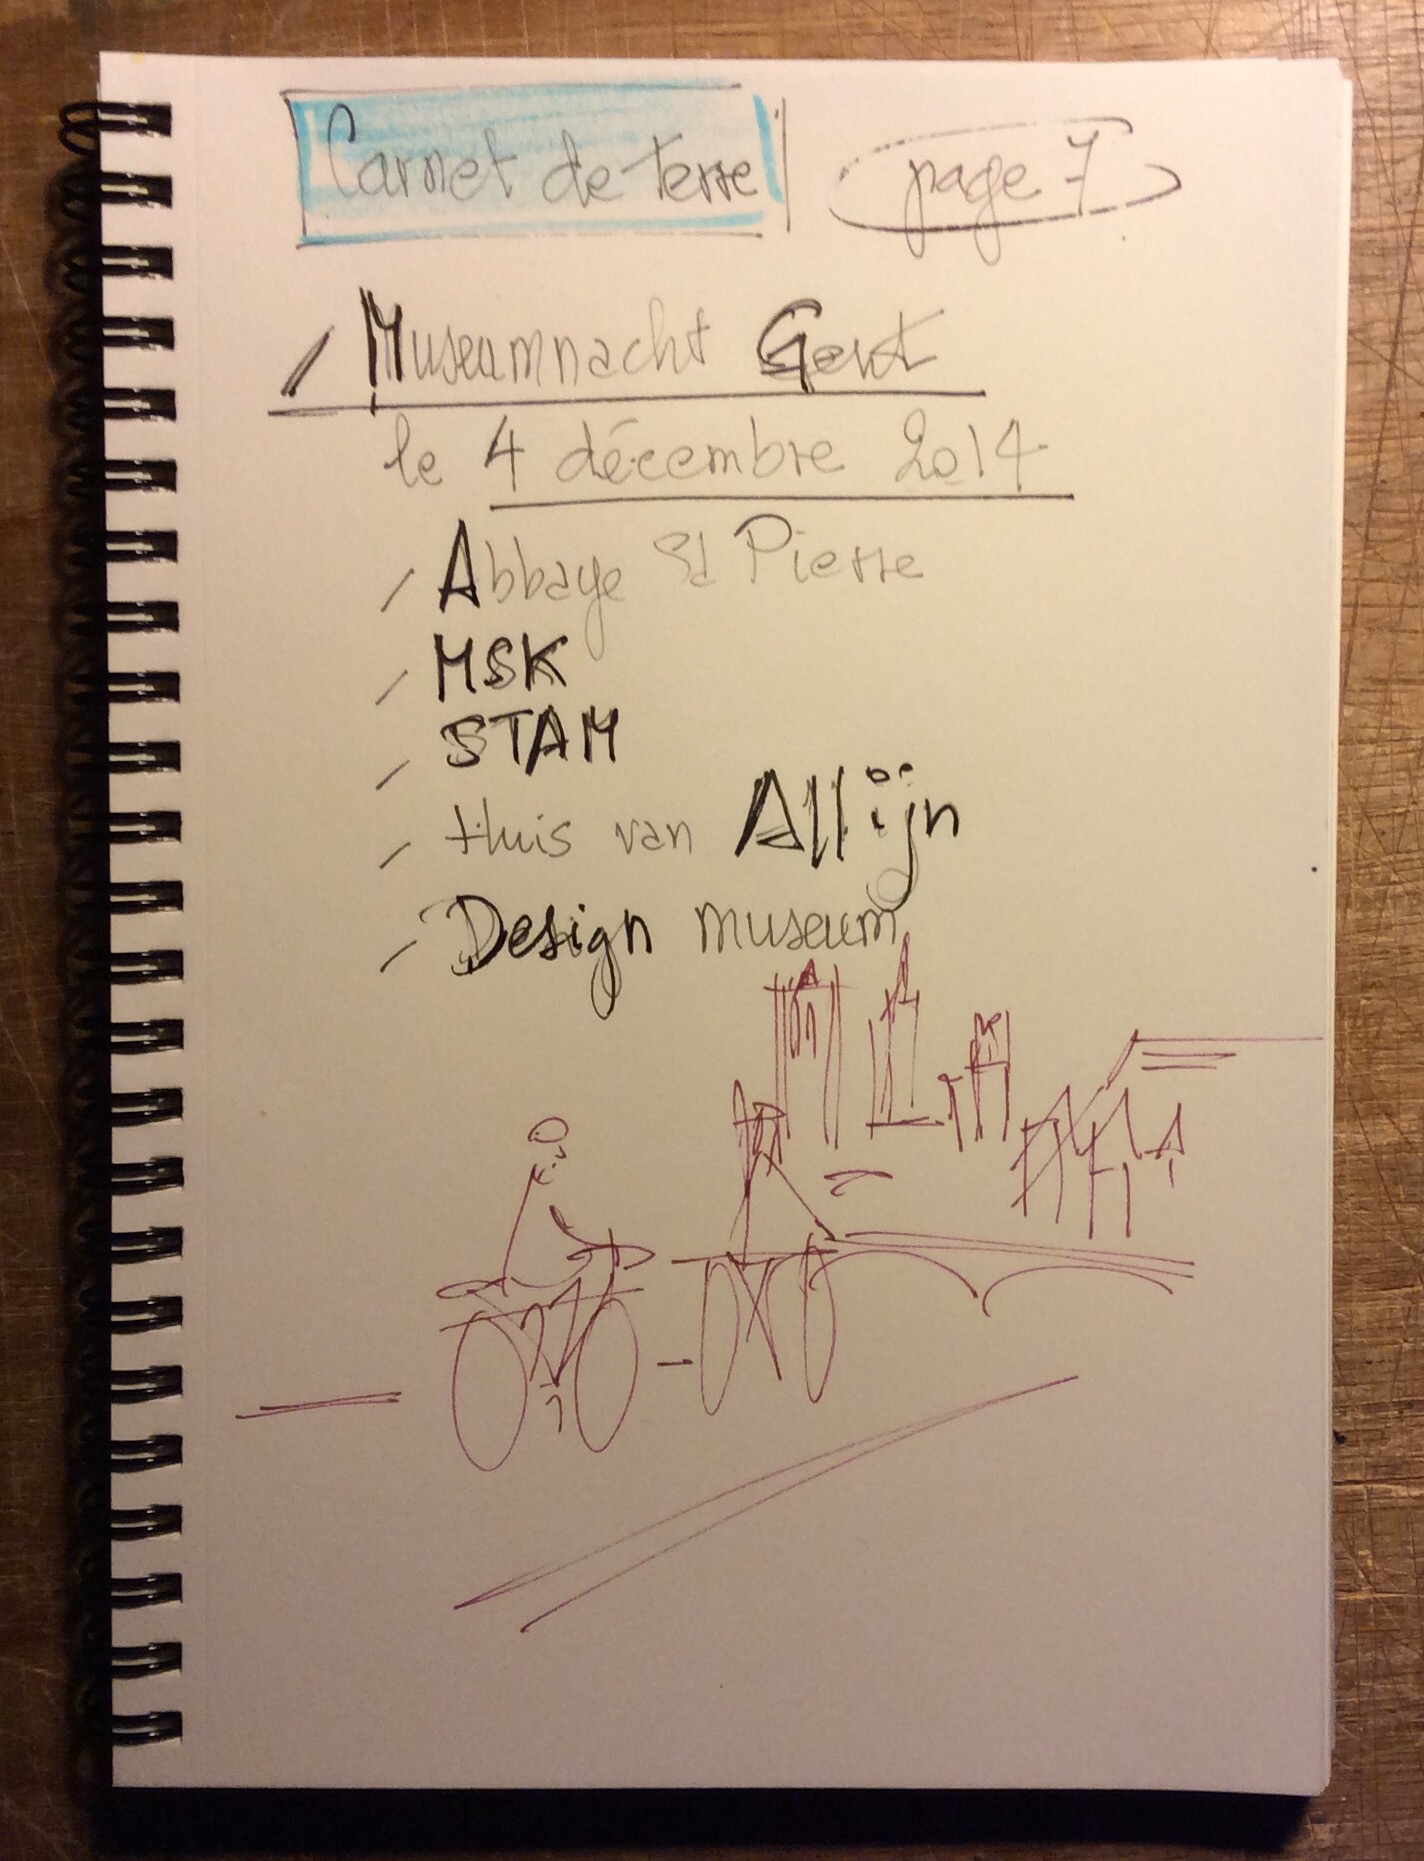 Carnet de terre page 7
Museumnacht Gent
le 4 décembre 2014
Abbaye St Pierre
MSK
STAM
Huis van Allijn
Design museum